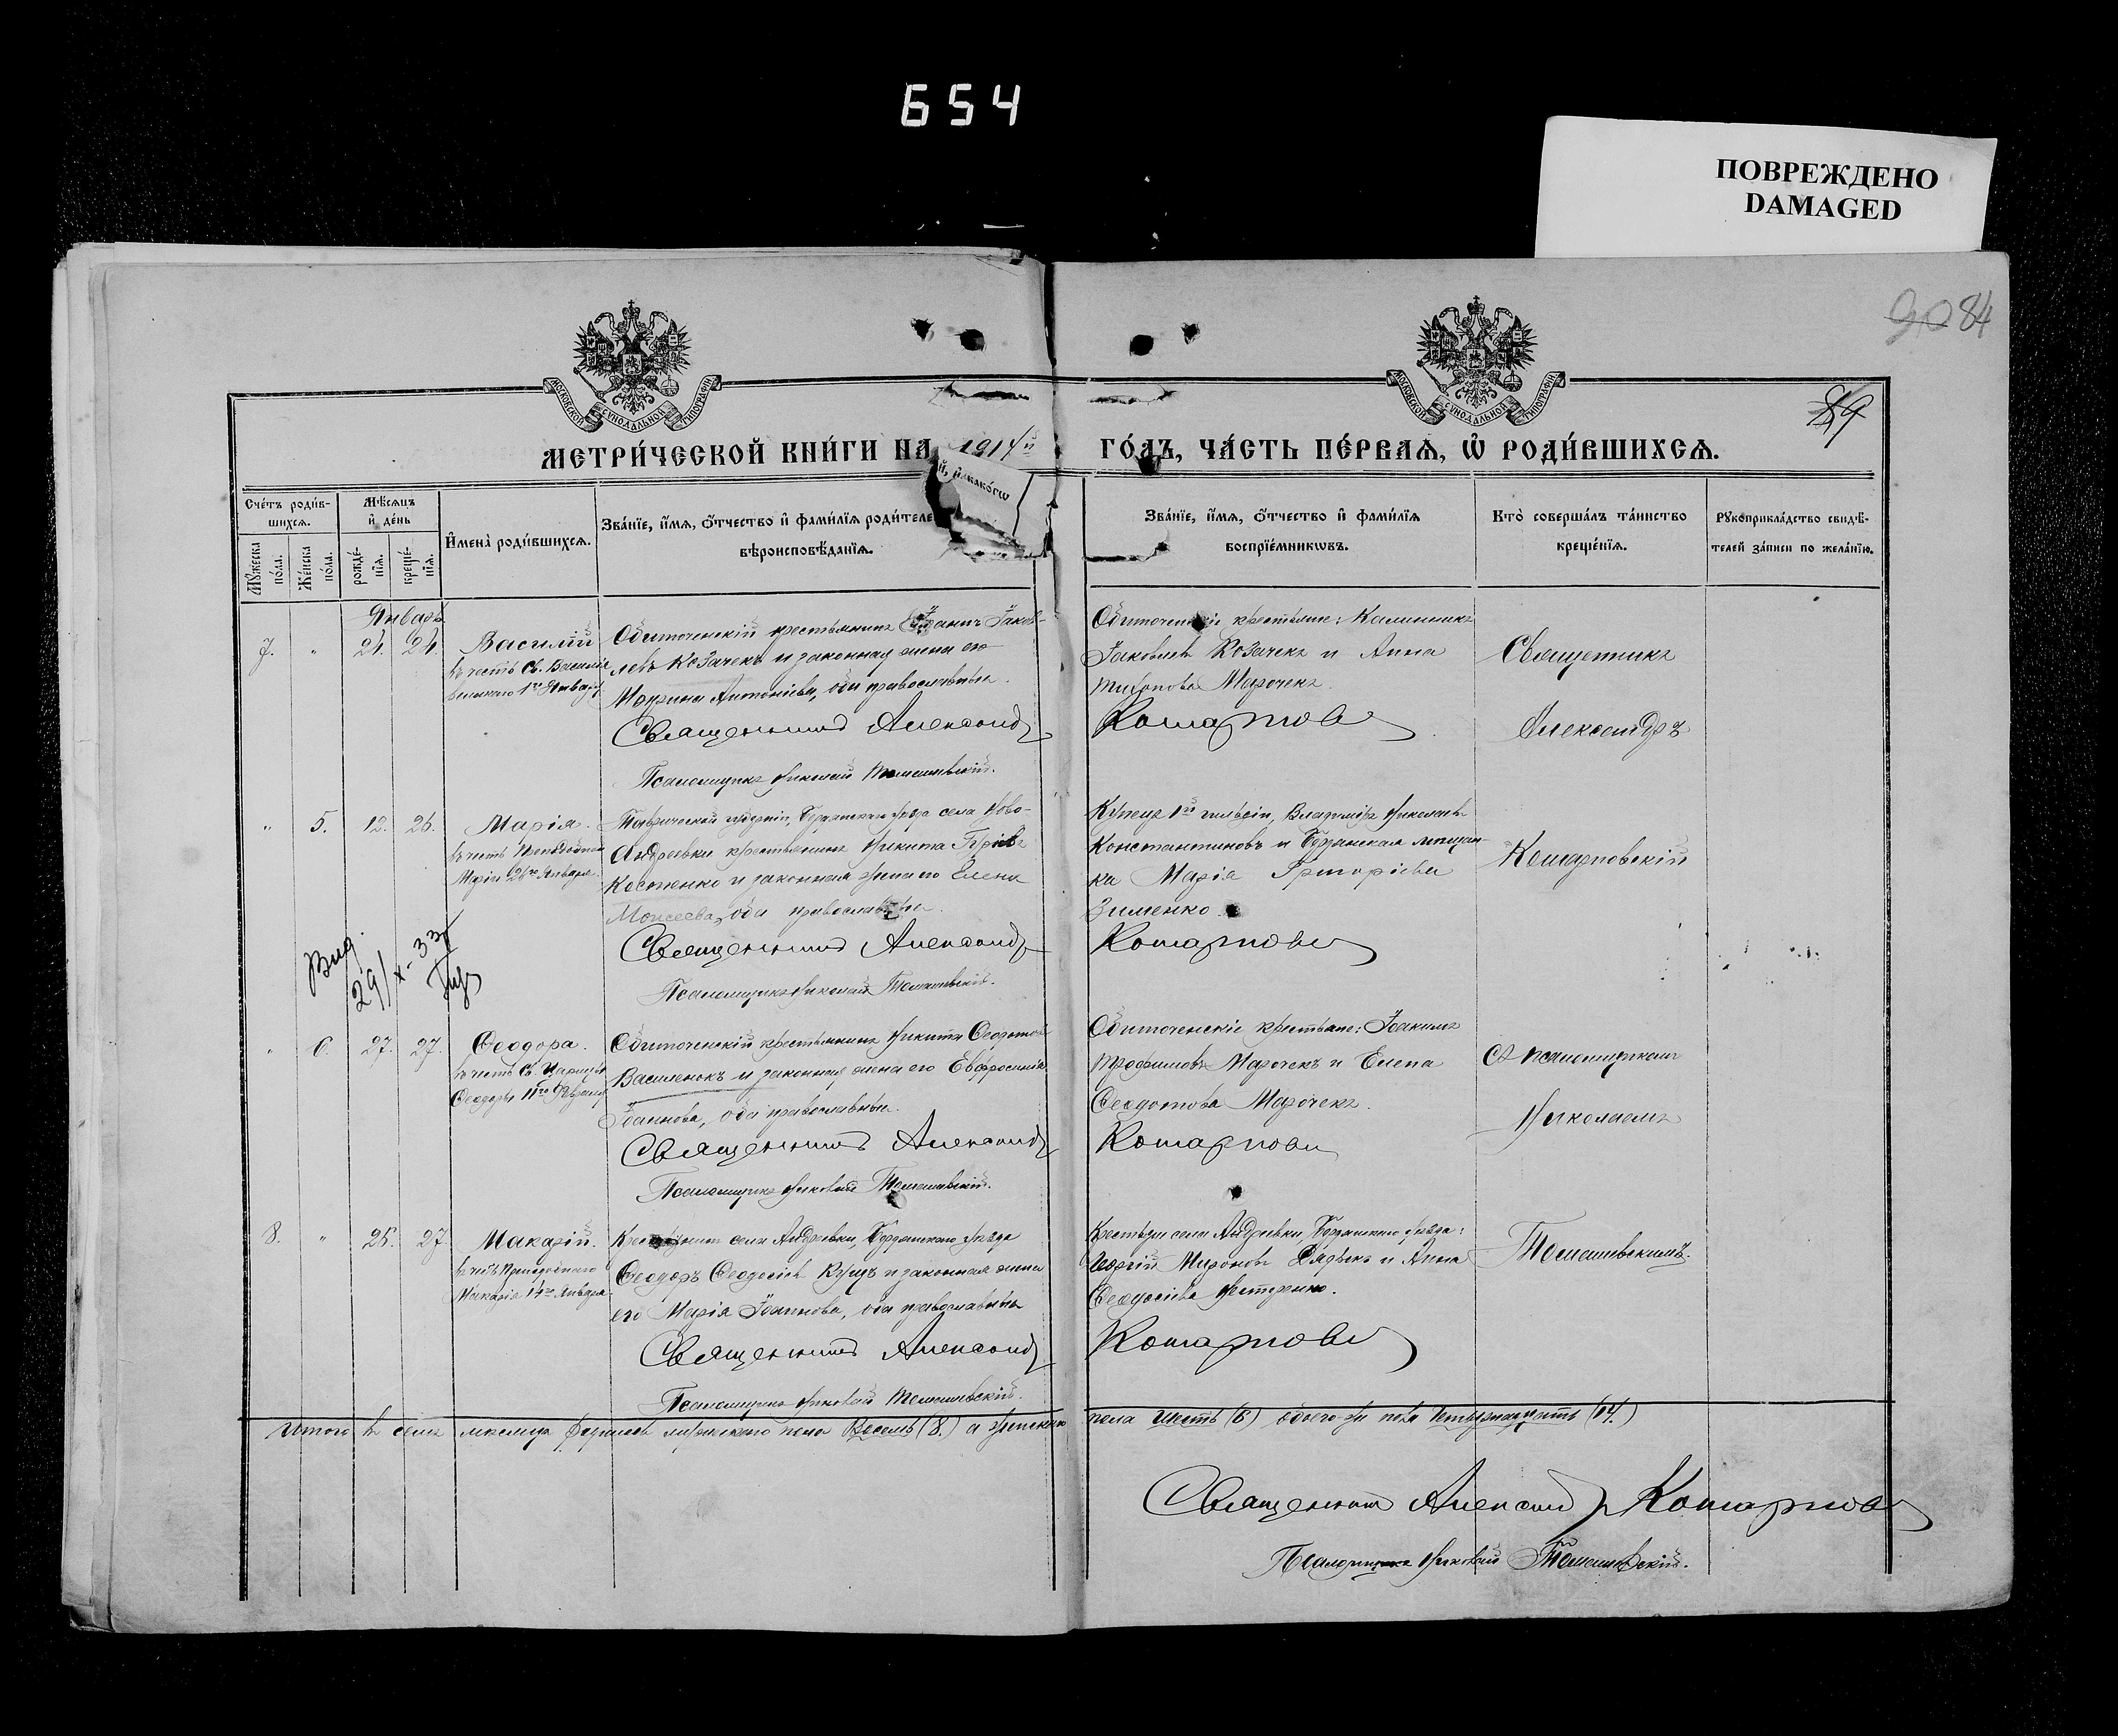 654
ПОВРЕЖДЕНО
DAMAGED
90 84
89
МОСКОВСКОЙ СѴНОДАЛЬНОЙ ТИПОГРАФІИ
МОСКОВСКОЙ СѴНОДАЛЬНОЙ ТИПОГРАФІИ
МЕТРИ́ЧЕСКОЙ КНИ́ГИ НА 1914й ГО́ДЪ, ЧА́СТЬ ПЕ́РВАѦ, Ѡ҆ РОДИ́ВШИХСѦ.
Сче́тъ роди́в-
шихсѧ.
Мꙋ́жеска по́ла.
Же́нска по́ла.
Мѣ́сѧцъ
и҆ де́нь
рожде́-
нїѧ.
креще́-
нїѧ.
И҆мена̀ роди́вшихсѧ.
Зва́нїе, и҆́мѧ, ѻ҆́тчество и҆ фами́лїѧ роди́теле
й, и҆ како́гѡ
вѣроисповѣ́данїѧ.
Зва́нїе, и҆́мѧ, ѻ҆́тчество и҆ фами́лїѧ
воспрїе́мникѡвъ.
Кто̀ соверша́лъ та́инство
креще́нїѧ.
Рꙋкоприкла́дство свидѣ́-
телей за́писи по жела́нїю.
Январь
7. " 24. 24. Василій
въ честь Св. Василія
великаго 1го Января
Обиточенскій крестьянинъ Іоаннъ Іаков-
левъ Козачекъ и законная жена его
Марина Антоніева, оба православные.
Священникъ Александръ
Псаломщикъ Николай Томашевскій.
Обиточенскіе крестьяне: Калинникъ
Іаковлевъ Козачекъ и Анна
Марочекъ.
Комарнов
Священникъ
Александръ
" 5. 12. 26. Марія.
въ честь Преподобной
Маріи 26го Января
Таврической губерніи, Бердянскаго уѣзда села Ново-
Андреевки крестьянинъ Никита
Костенко и законная жена его Елена
Моисеева, оба православные.
Священникъ Александръ
Псаломщикъ Николай Томашевскій.
Купецъ 1й гильдіи, Владиміръ Николаевъ
Константиновъ и Бердянская мѣщан-
ка Марія Григоріева
Зименко.
Комарнов
Комарновскій
Выд.
29/X-33г
" 6. 27. 27. Ѳеодора.
въ честь Св. Царицы
Ѳеодоры 11го Февраля
Обиточенскій крестьянинъ Никита Ѳеодотовъ
Василенокъ и законная жена его Евфросинія
Іоаннова, оба православные.
Священникъ Александръ
Псаломщикъ Николай Томашевскій.
Обиточенскіе крестьяне: Іоакимъ
Трофимовъ Марочекъ и Елена
Ѳеодотова Марочекъ.
Комарнов
Съ псаломщикомъ
Николаемъ
8. " 25. 27. Макарій.
въ честь Преподобнаго
Макарія 14го Января
Крестьянинъ села Андреевки, Бердянскаго уѣзда
Ѳеодоръ Ѳеодосіевъ и законная жена
его Марія Іоаннова, оба православные
Священникъ Александръ
Псаломщикъ Николай Томашевскій.
Крестьяне села Андреевки, Бердянскаго уѣзда:
Георгій Мироновъ и Анна
Ѳеодосіева Нестеренко.
Комарнов
Томашевскимъ.
Итого въ семъ мѣсяцѣ родилось мужескаго пола Восемь (8.) а женскаго пола шесть (6) обоего-же пола Четырнадцать (14.)
Священникъ Александръ Комарнов
Псаломщикъ Николай Томашевскій.